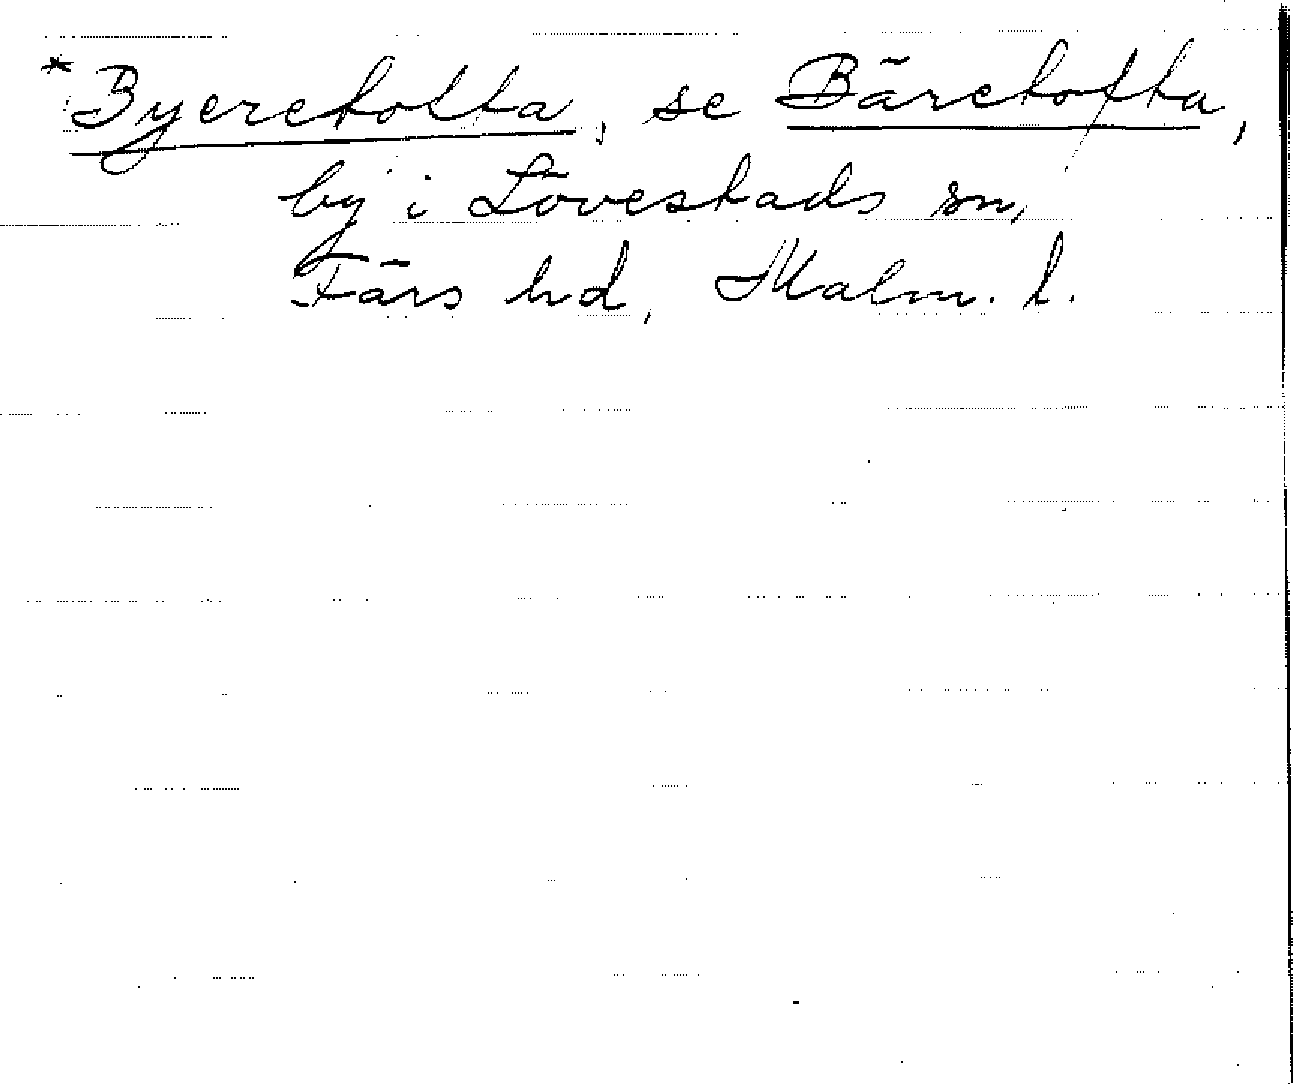 *Byeretotta, se Bäretofta,
by i Lövestads sn,
Färs hd, Malm. l.